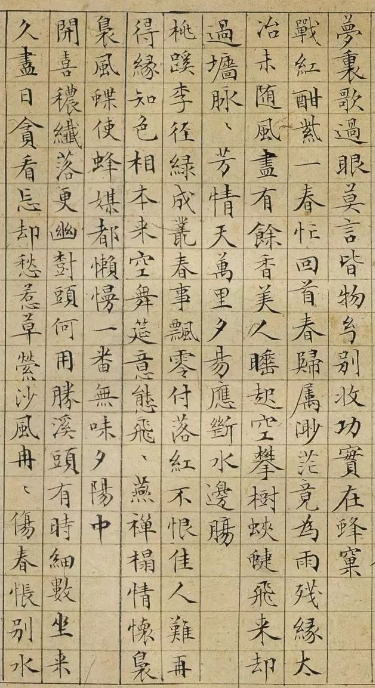 夢裏歌過眼莫言皆物幻別收功實在蜂窠
戰紅酣紫一春忙回首春歸屬渺茫竟為雨殘緣太
冶未随風盡有餘香美人睡起空攀樹蛺蝶飛来却
過墻脉〻芳情天萬里夕昜應斷水邊腸
桃蹊李徑緑成叢春事飄零付落紅不恨佳人難再
得緣知色相本来空舞筵意態飛〻燕禪榻情懷裊
裊風蝶使蜂媒都懶慢一番無味夕陽中
開喜穠纖落更幽對頭何用勝溪頭有時細數坐来
久盡日貪看忘却愁惹草縈沙風冉〻傷春悵別水